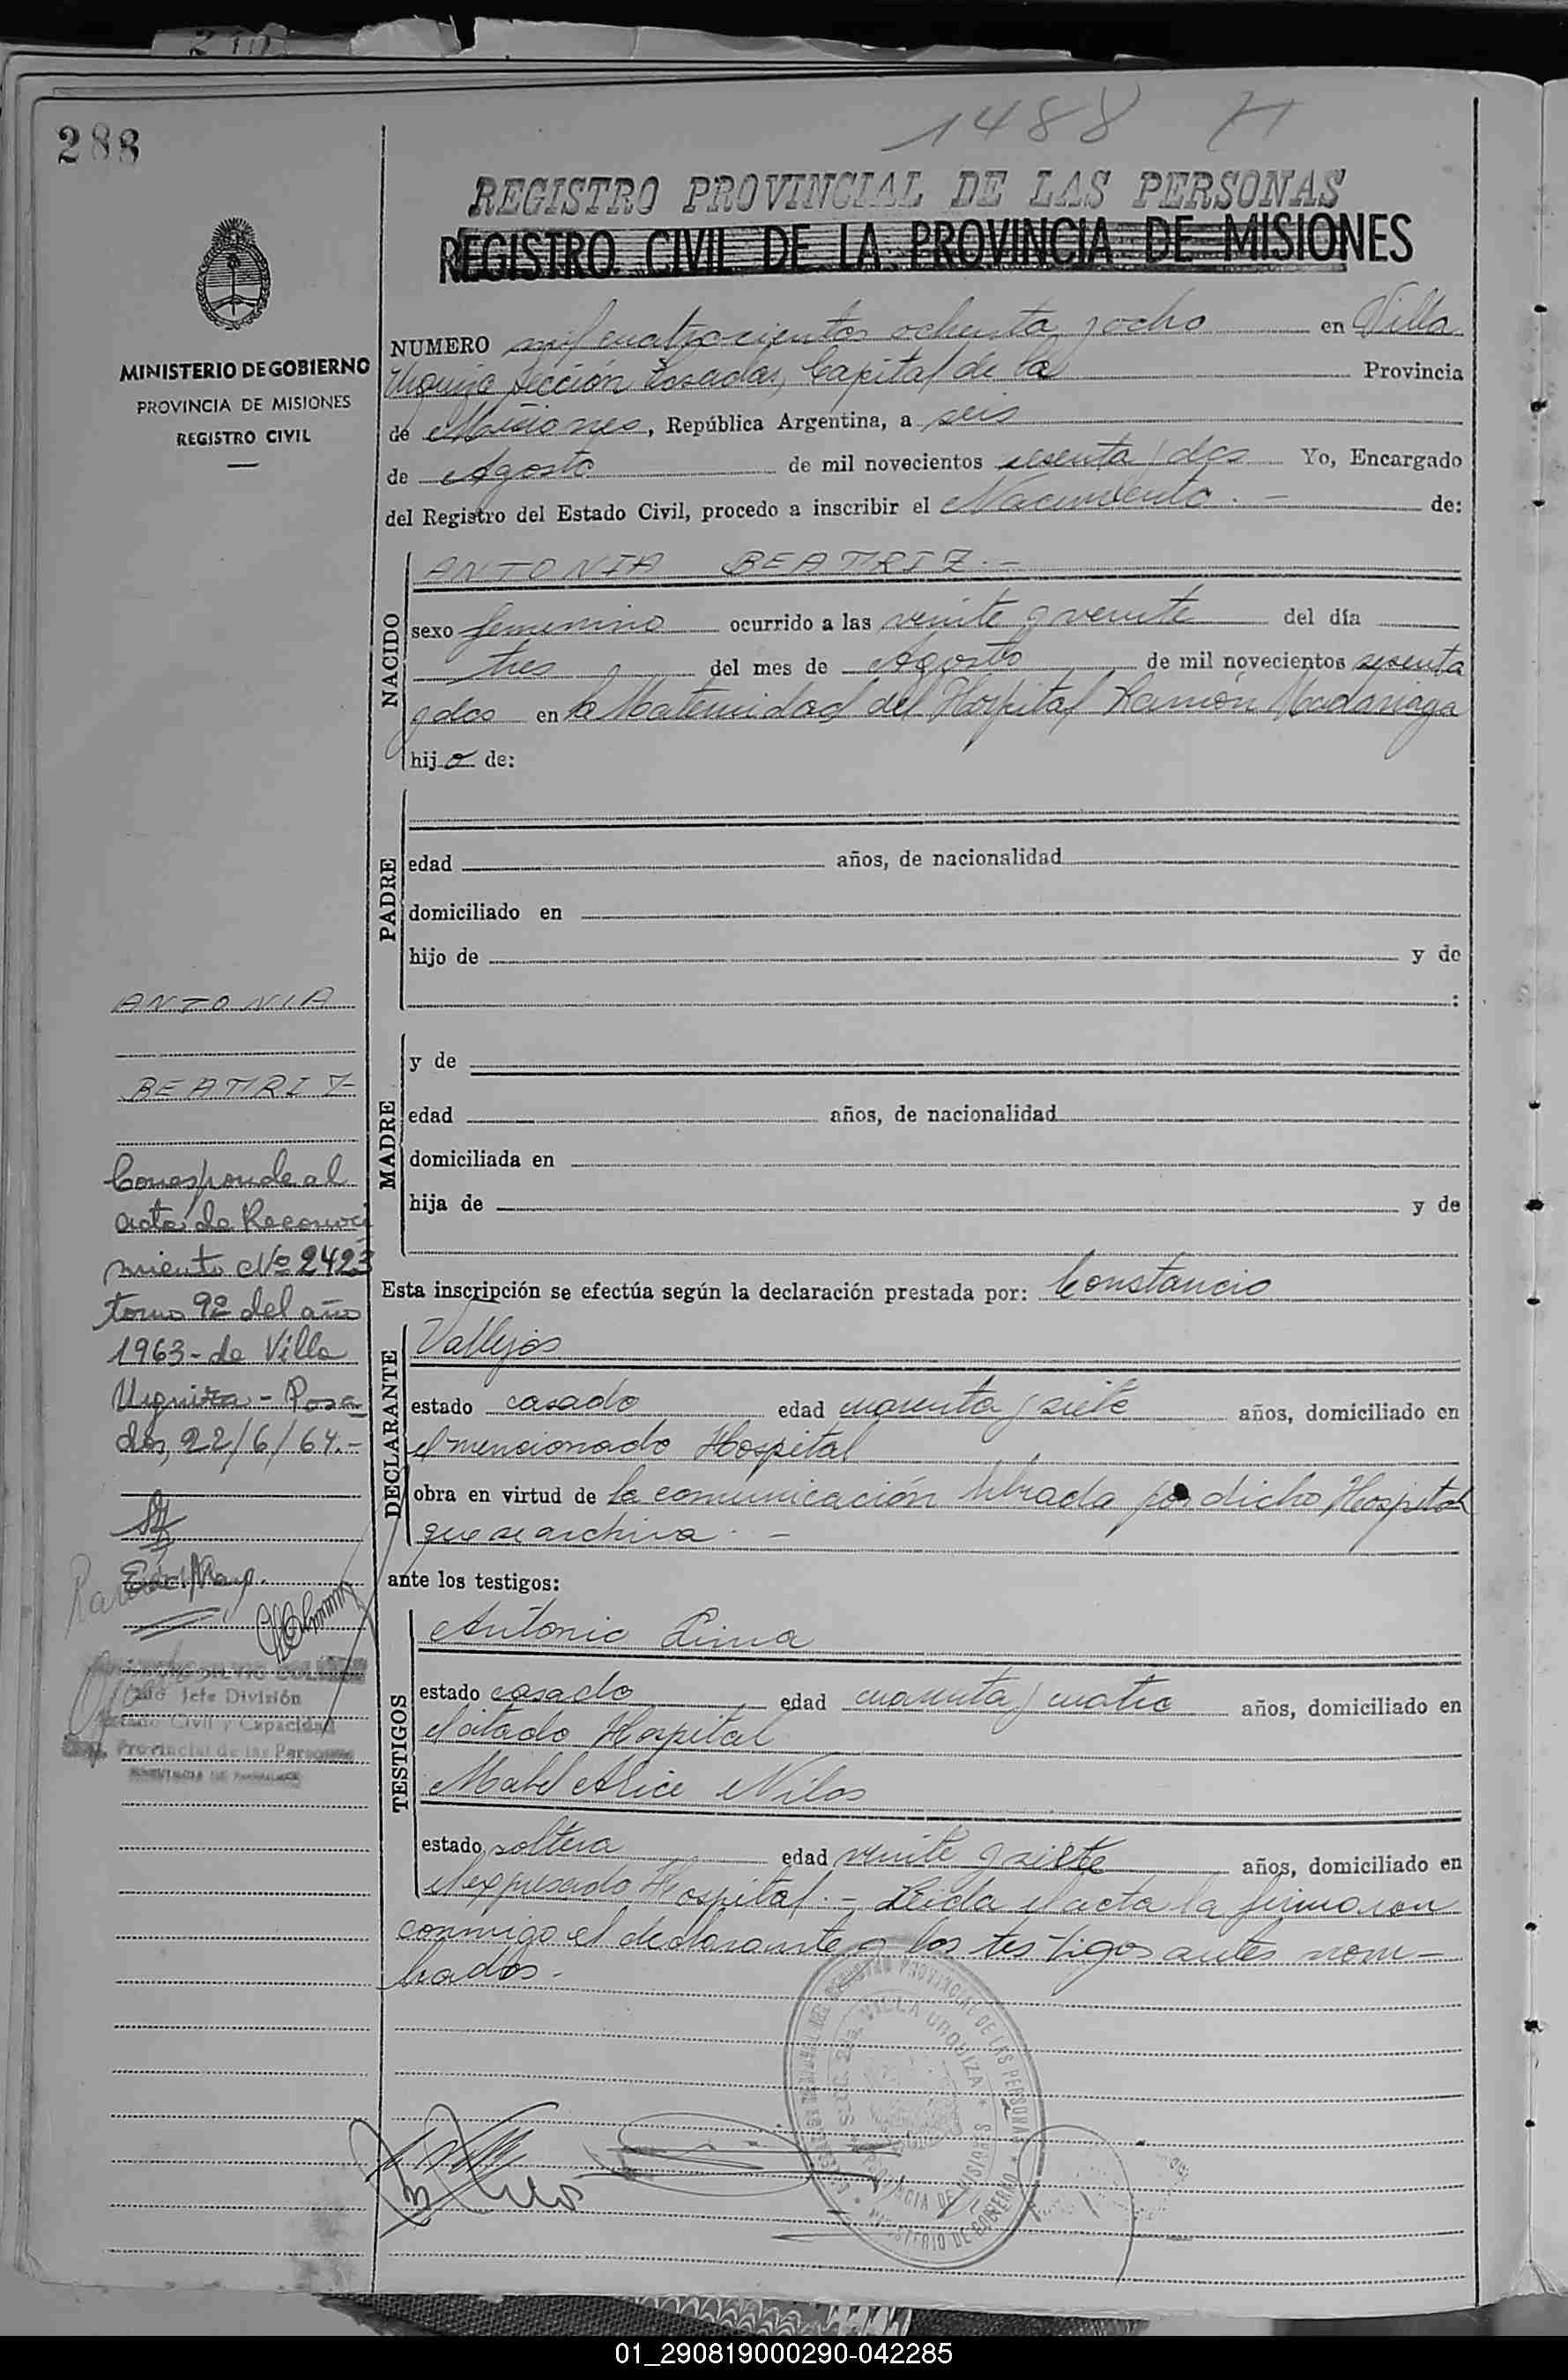 288
1488
REGISTRO PROVINCIAL DE LAS PERSONAS
REGISTRO CIVIL DE LA PROVINCIA DE MISIONES
MINISTERIO DE GOBIERNO
PROVINCIA DE MISIONES
REGISTRO CIVIL
NUMERO mil cuatrocientos ochenta y ocho en Villa
Urquiza sección Posadas, Capital de la Provincia
de Misiones, República Argentina, a seis
de Agosto de mil novecientos sesenta y dos Yo, Encargado
del Registro del Estado Civil, procedo a inscribir el Nacimiento.- de:
NACIDO
ANTONIA BEATRIZ.-
sexo femenino ocurrido a las veinte y veinte del día
tres del mes de Agosto de mil novecientos sesenta
y dos en la Maternidad del Hospital Ramón Madariaga
hija de:
PADRE
edad años, de nacionalidad
domiciliado en
hijo de y de
:
MADRE
y de
edad años, de nacionalidad
domiciliada en
hija de y de
Esta inscripción se efectúa según la declaración prestada por: Constancio
DECLARANTE
Vallejos
estado casado edad cuarenta y siete años, domiciliado en
el mencionado Hospital
obra en virtud de la comunicación librada por dicho Hospital
que se archiva.-
ante los testigos:
TESTIGOS
Antonio Lima
estado casado edad cuarenta y cuatro años, domiciliado en
el citado Hospital
Mabel Alice Nilos
estado soltera edad veinte y siete años, domiciliado en
el expresado Hospital.- Leida el acta la firmaron
conmigo el declarante y los testigos antes nom-
brados.-
ANTONIA
BEATRIZ
Corresponde al
acta de Reconoci
miento Nº 2423
tomo 9º del año
1963- de Villa
Urquiza - Posa
das, 22/6/64.-
Jefe División
Estado Civil y Capacidad
Provincial de las Personas
REGISTRO PROVINCIAL DE LAS PERSONAS
VILLA URQUIZA
PROVINCIA DE MISIONES
MINISTERIO DE GOBIERNO
01_290819000290-042285